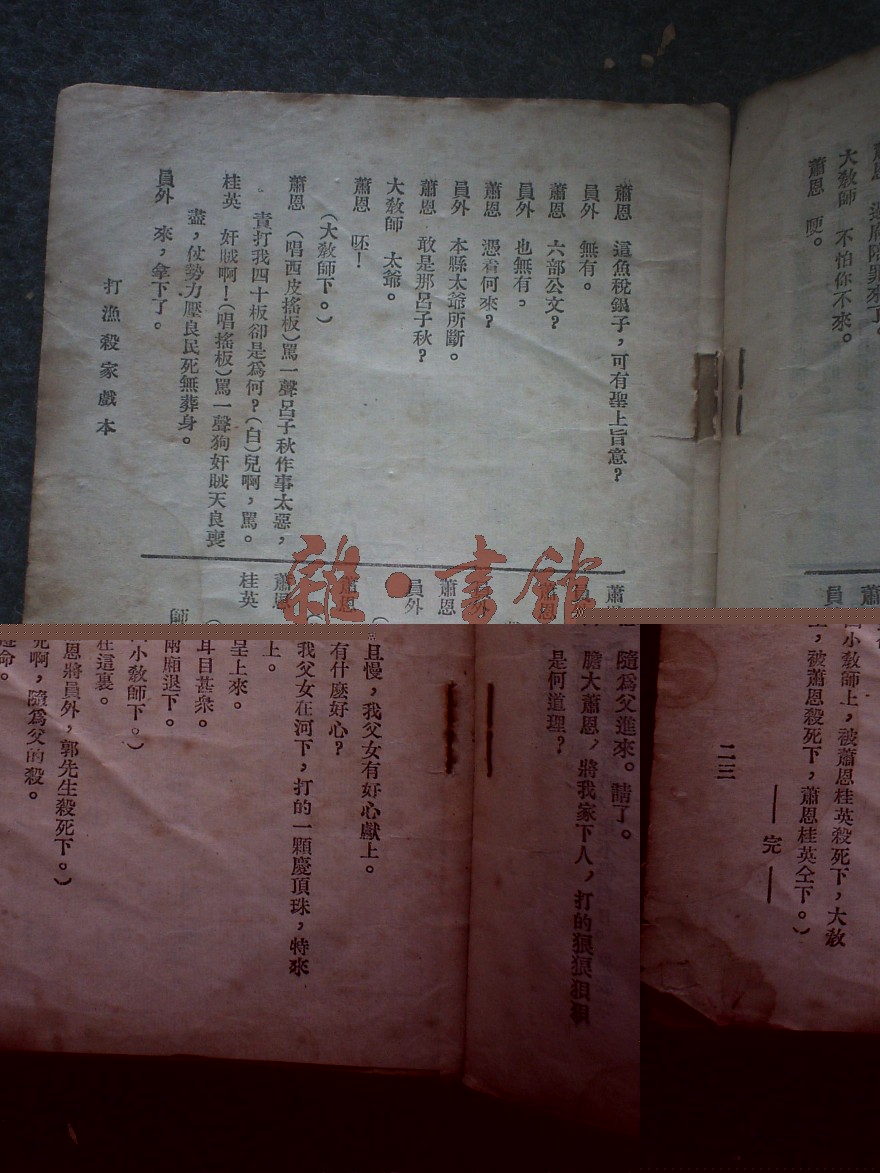 蕭恩 這魚稅銀子,可有聖上旨意?
員外 無有。
蕭恩 六部公文?
員外 也無有。
蕭恩 憑着何來?
員外 本縣太爺所斷。
蕭恩 敢是那呂子秋?
大敎師 太爺。
蕭恩 呸!
(大敎師下。)
蕭恩 (唱西皮搖板)罵一聲呂子秋作事太惡,
責打我四十板卻是爲何?(白)兒啊,罵。
桂英 奸賊啊!(唱搖板)罵一聲狗奸賊天良喪
盡,仗勢力壓良民死無葬身。
員外 來,拿下了。
打漁殺家戲本
大敎師 不怕你不來。
蕭恩 哽。
蕭恩
員外
蕭恩
員外
蕭恩
桂英
師
雜·書館
隨爲父進來。請了。
膽大蕭恩,將我家下人,打的狼狼狽狽
是何道理?
且慢,我父女有好心獻上。
有什麼好心?
我父女在河下,打的一顆慶頂珠,特來
上。
呈上來。
耳目甚衆。
兩廂退下。
小敎師下。)
在這裏。
恩將員外,郭先生殺死下。)
啊,隨爲父的殺。
命。
小敎師上,被蕭恩桂英殺死下,大敎
,被蕭恩殺死下,蕭恩桂英仝下。)
——完——
二三